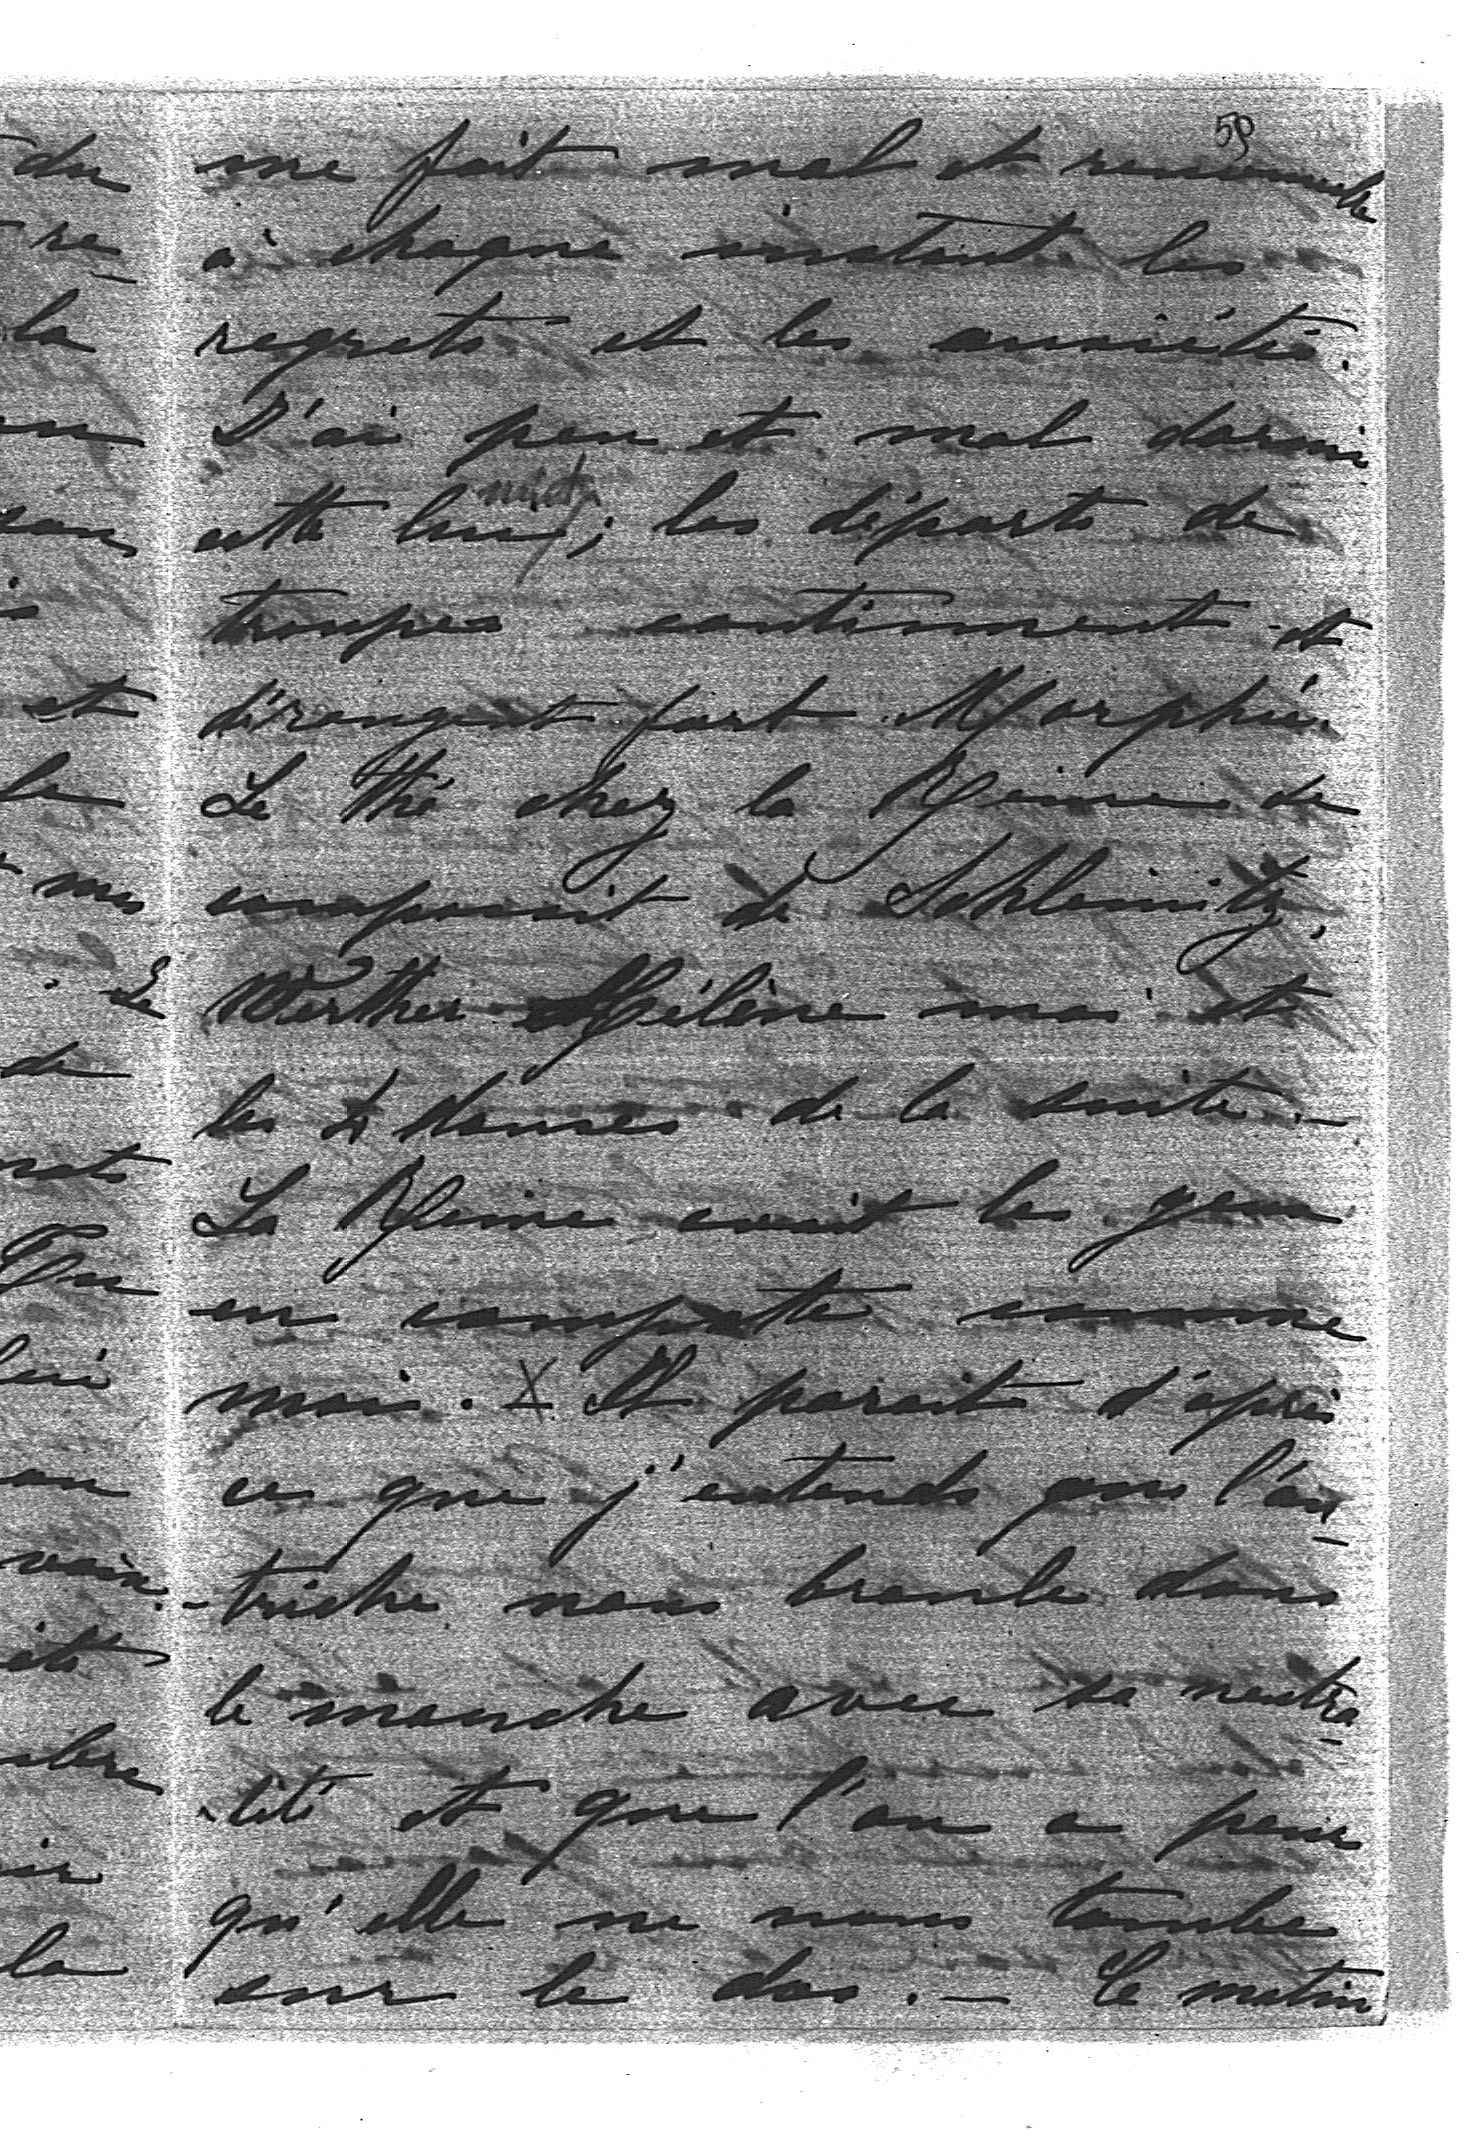 59
me fait mal et renouvelle
à chaque instant les
regrets et les anxiétés.
J'ai peu et mal dormi
nuit
cette ; les départs de
troupes continuent et
dérangent fort Morphée.
Le thé chez la Reine se
composait de Schleinitz,
Werther Hélène moi et
les 2 dames de la suite. —
La Reine avait les yeux
en compotte comme
moi. X Il parait d'après
ce que j'entends que l'Au-
-triche nous branle dans
le manche avec sa neutra-
-lité et que l'on a peur
qu'elle ne nous tombe
sur le dos. — Ce matin
du
re-
la
et
le
mes
. Le
de
la